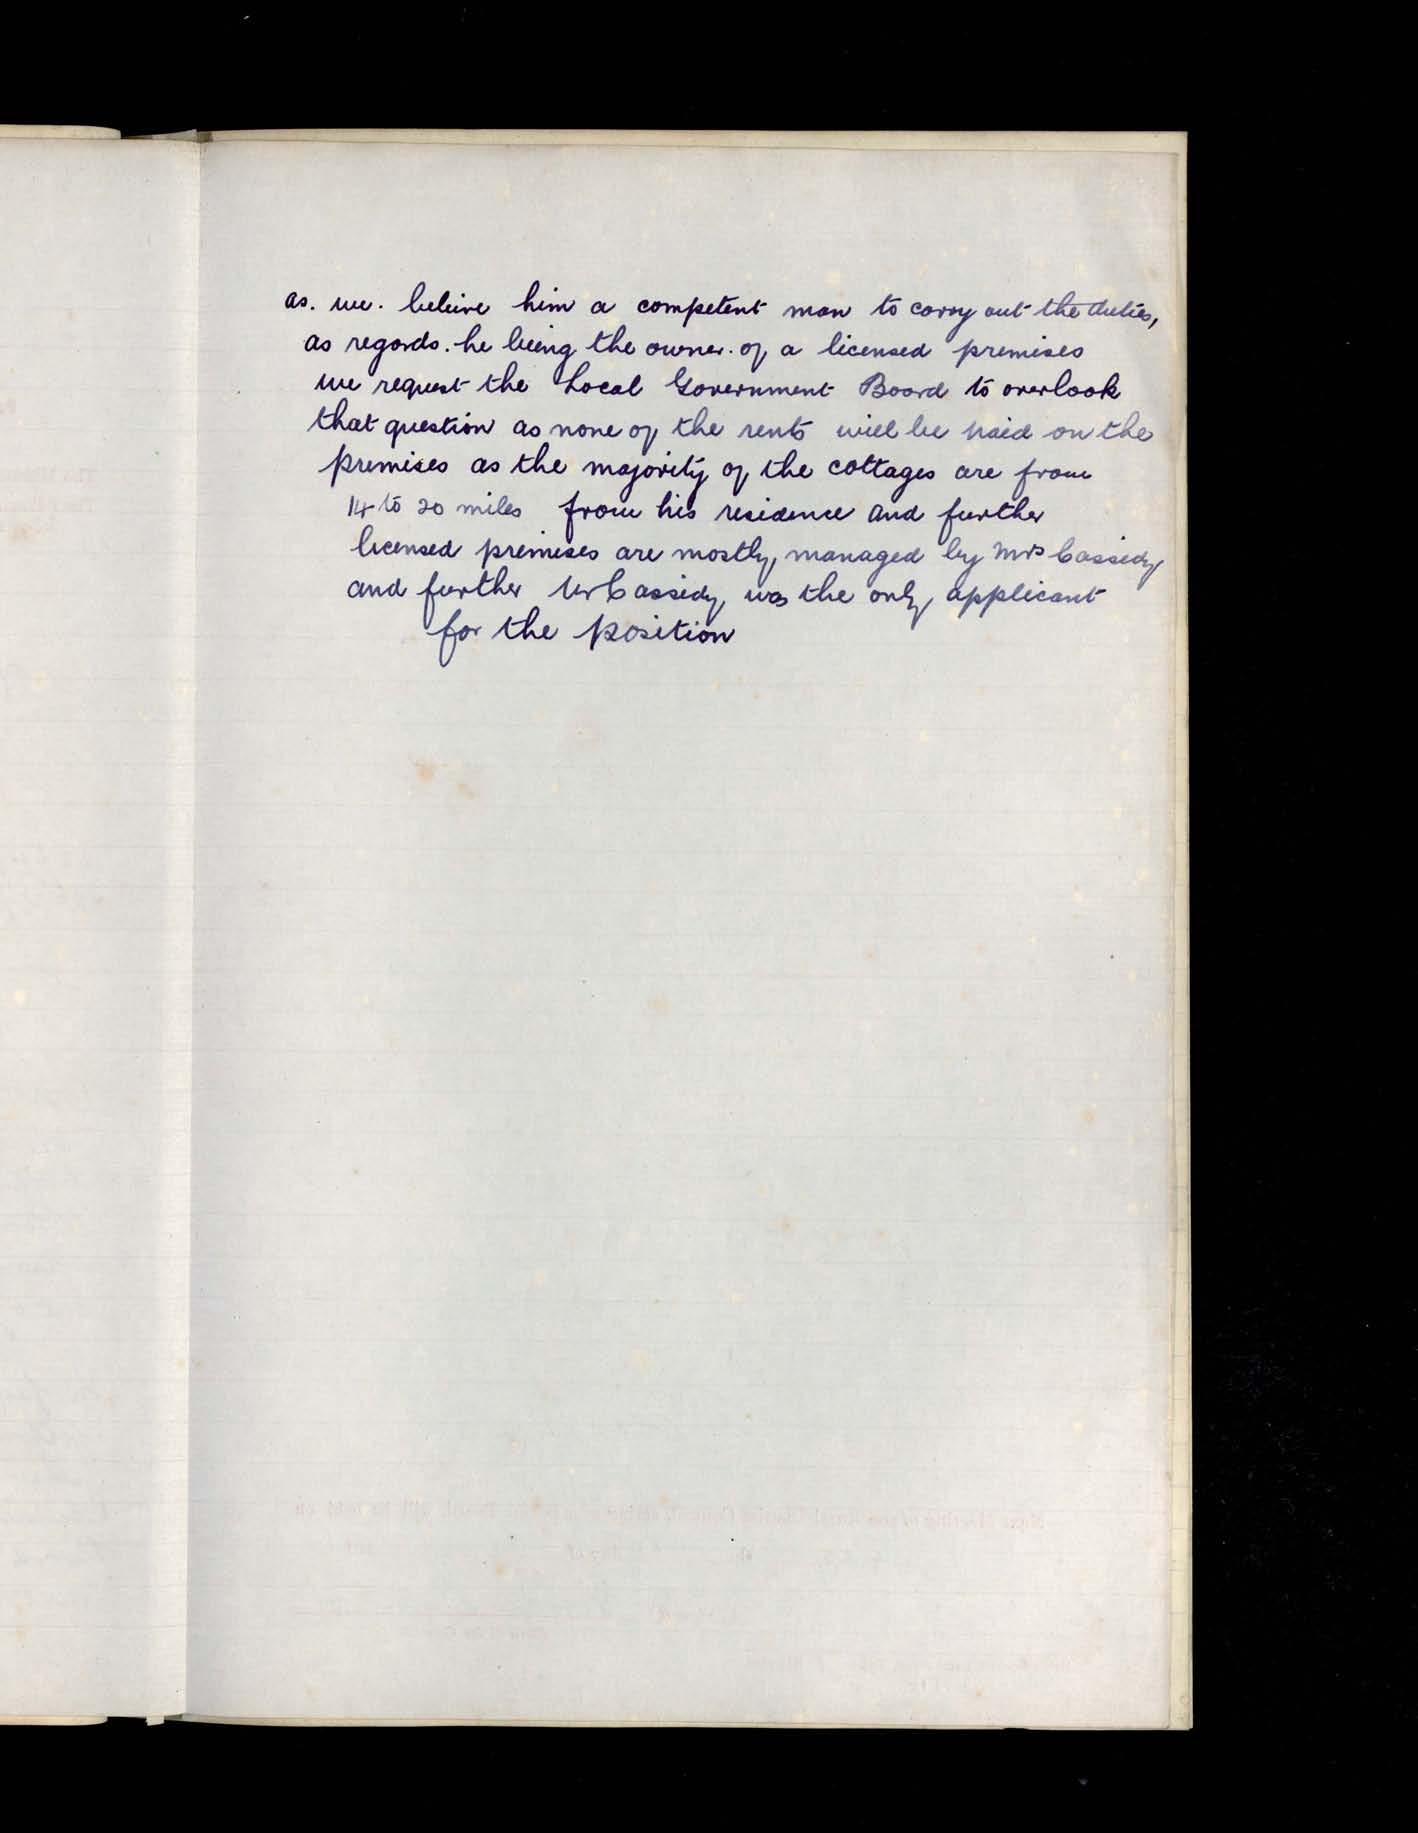 as. we. beleive him a competent man to carry out the duties,
as regards. he being the owner. of a licensed premises
we request the Local Government Board to overlook
that question as none of the rents will be paid on the
premises as the majority of the cottages are from
14 to 20 miles from his residence and further
licensed premises are mostly managed by Mrs Cassidy
and further Mr Cassidy was the only applicant
for the position